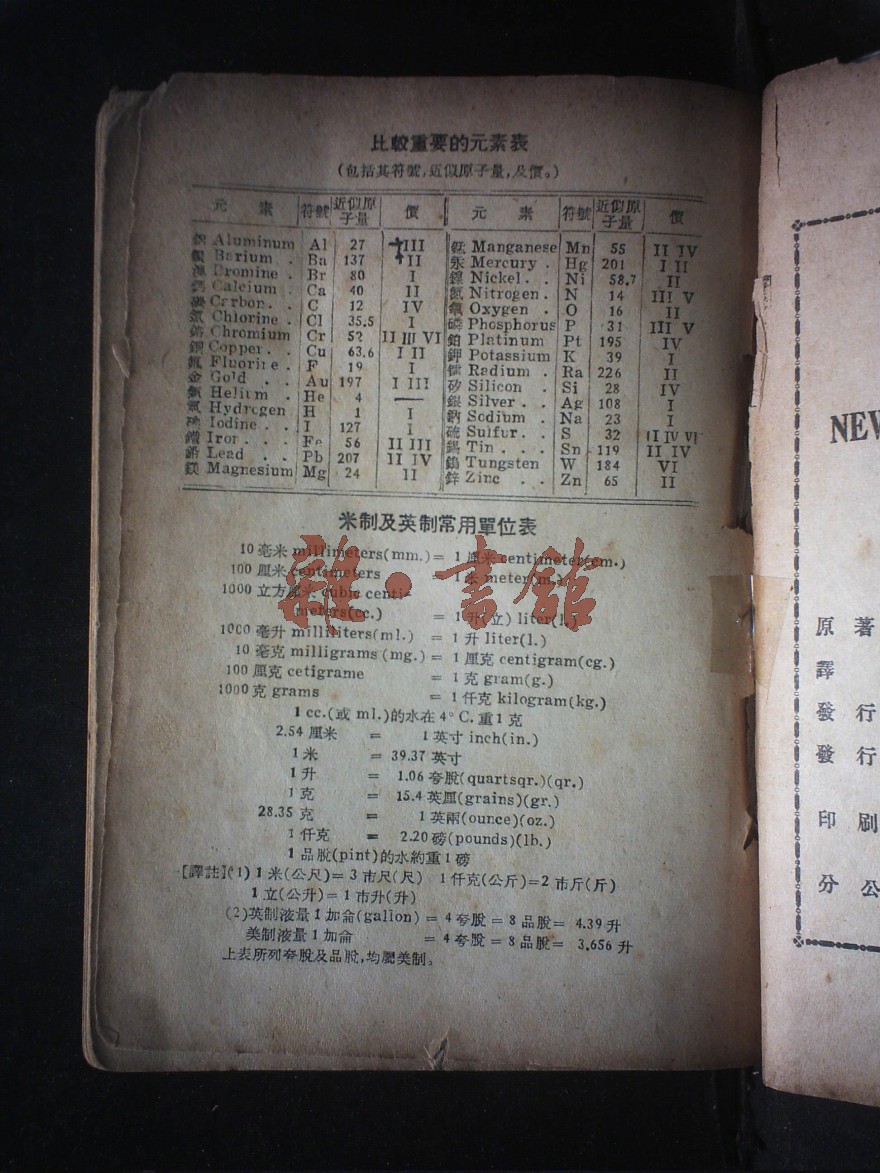 比較重要的元素表
(包括其符號,近似原子量,及價。)
元 素 符號 近似原子量 價 元 素 符號 近似原子量 價
Aluminum Al 27 III 錳 Manganese Mn 55 II IV
鋇 Barium . Ba 137 II 汞 Mercury . Hg 201 I II
溴 Bromine . Br 80 I 鎳 Nickel . . Ni 58.7 II
鈣 Calcium . Ca 40 II 氮 Nitrogen . N 14 III V
碳 Carbon . C 12 IV 氧 Oxygen . O 16 II
氯 Chlorine . Cl 35.5 I 磷 Phosphorus P 31 III V
鉻 Chromium Cr 52 II III VI 鉑 Platinum Pt 195 IV
銅 Copper . . Cu 63.6 I II 鉀 Potassium K 39 I
氟 Fluorine . F 19 I 鐳 Radium . Ra 226 II
金 Gold . . Au 197 I III 矽 Silicon . Si 28 IV
氦 Helium . He 4 — 銀 Silver . . Ag 108 I
氫 Hydrogen H 1 I 鈉 Sodium . Na 23 I
碘 Iodine . . I 127 I 硫 Sulfur. . S 32 II IV VI
鐵 Iron . . . Fe 56 II III 錫 Tin . . . Sn 119 II IV
鉛 Lead . . Pb 207 II IV 鎢 Tungsten W 184 VI
鎂 Magnesium Mg 24 II 鋅 Zinc . . Zn 65 II
米制及英制常用單位表
10 毫米 millimeters(mm.) = 1 厘米 centimeter(cm.)
100 厘米 centimeters 1 米 meter(m.)
1000 立方厘米 cubic centi-
meters(cc.) = 1 升(立) liter(l.)
1000 毫升 milliliters(ml.) = 1 升 liter(l.)
10 毫克 milligrams (mg.) = 1 厘克 centigram(cg.)
100 厘克 cetigrame = 1 克 gram(g.)
1000 克 grams = 1 仟克 kilogram(kg.)
1 cc.(或 ml.)的水在 4° C. 重 1 克
2.54 厘米 = 1 英寸 inch(in.)
1 米 = 39.37 英寸
1 升 = 1.06 夸脫(quartsqr.)(qr.)
1 克 = 15.4 英厘(grains)(gr.)
28.35 克 = 1 英兩(ounce)(oz.)
1 仟克 = 2.20 磅(pounds)(lb.)
1 品脫(pint)的水約重 1 磅
[譯註](1) 1 米(公尺)= 3 市尺(尺) 1 仟克(公斤)=2 市斤(斤)
1 立(公升)=1 市升(升)
(2)英制液量 1 加侖(gallon) = 4 夸脫 = 8 品脫 = 4.39 升
美制液量 1 加侖 = 4 夸脫 = 8 品脫 = 3,656 升
上表所列夸脫及品脫,均屬美制。
雜·書館
NEW
原 著
譯
發 行
發 行
印 刷
分 公